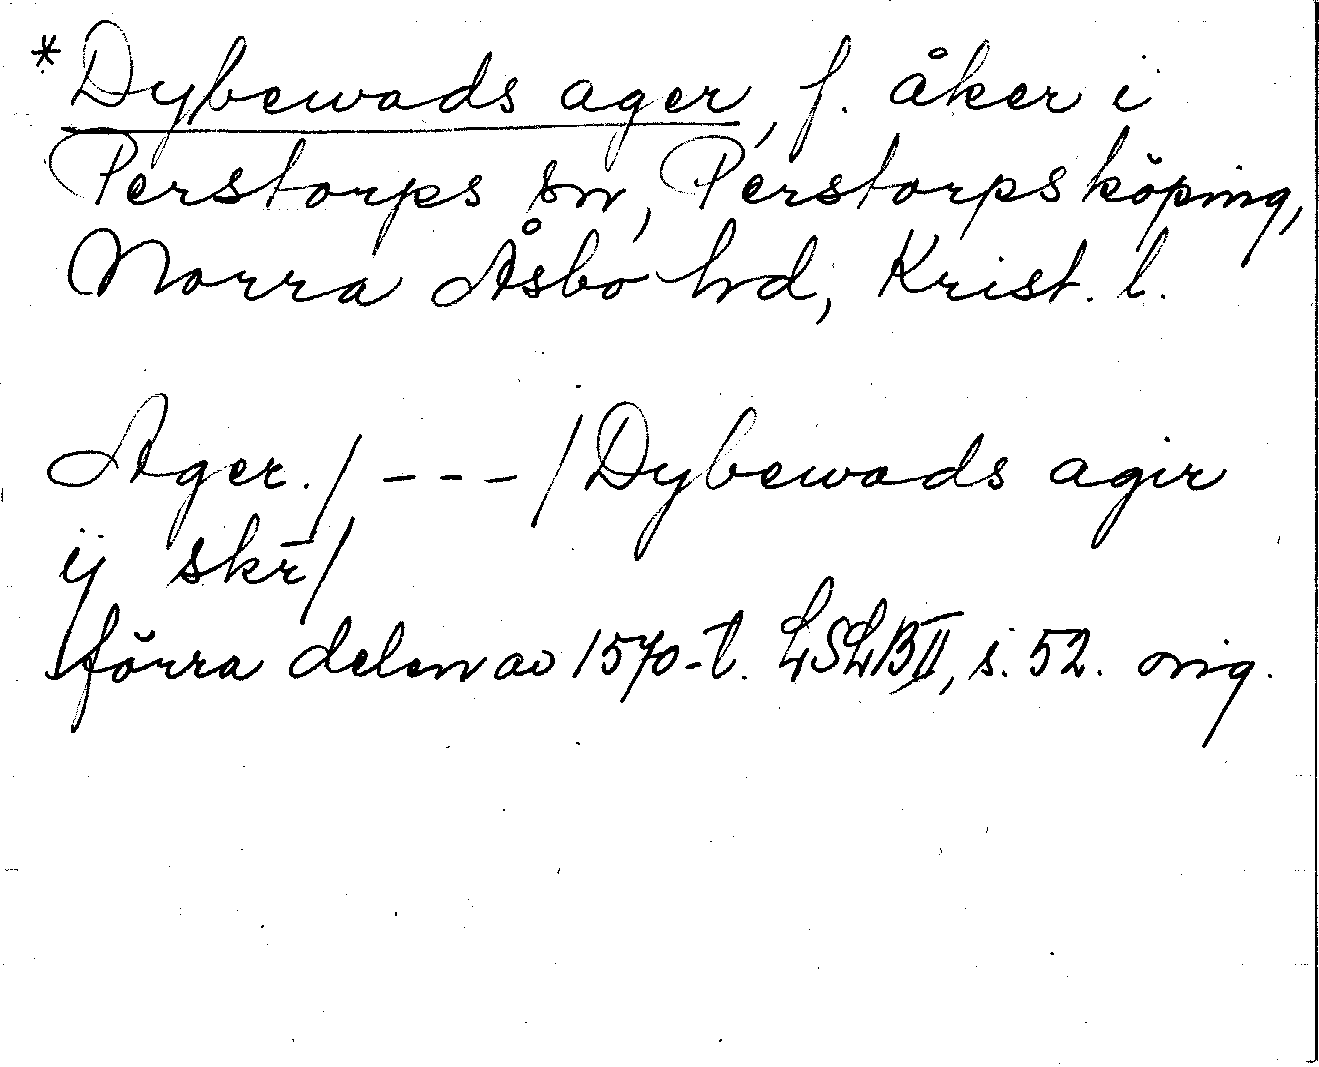 *Dybewads ager, f. åker i
Perstorps sn, Perstorps köping,
Norra Åsbo hd, Krist. l.
Ager. / - - - / Dybewads agir
ij skr̄ /
förra delen av 1570-t. LSLB II, s. 52. orig.